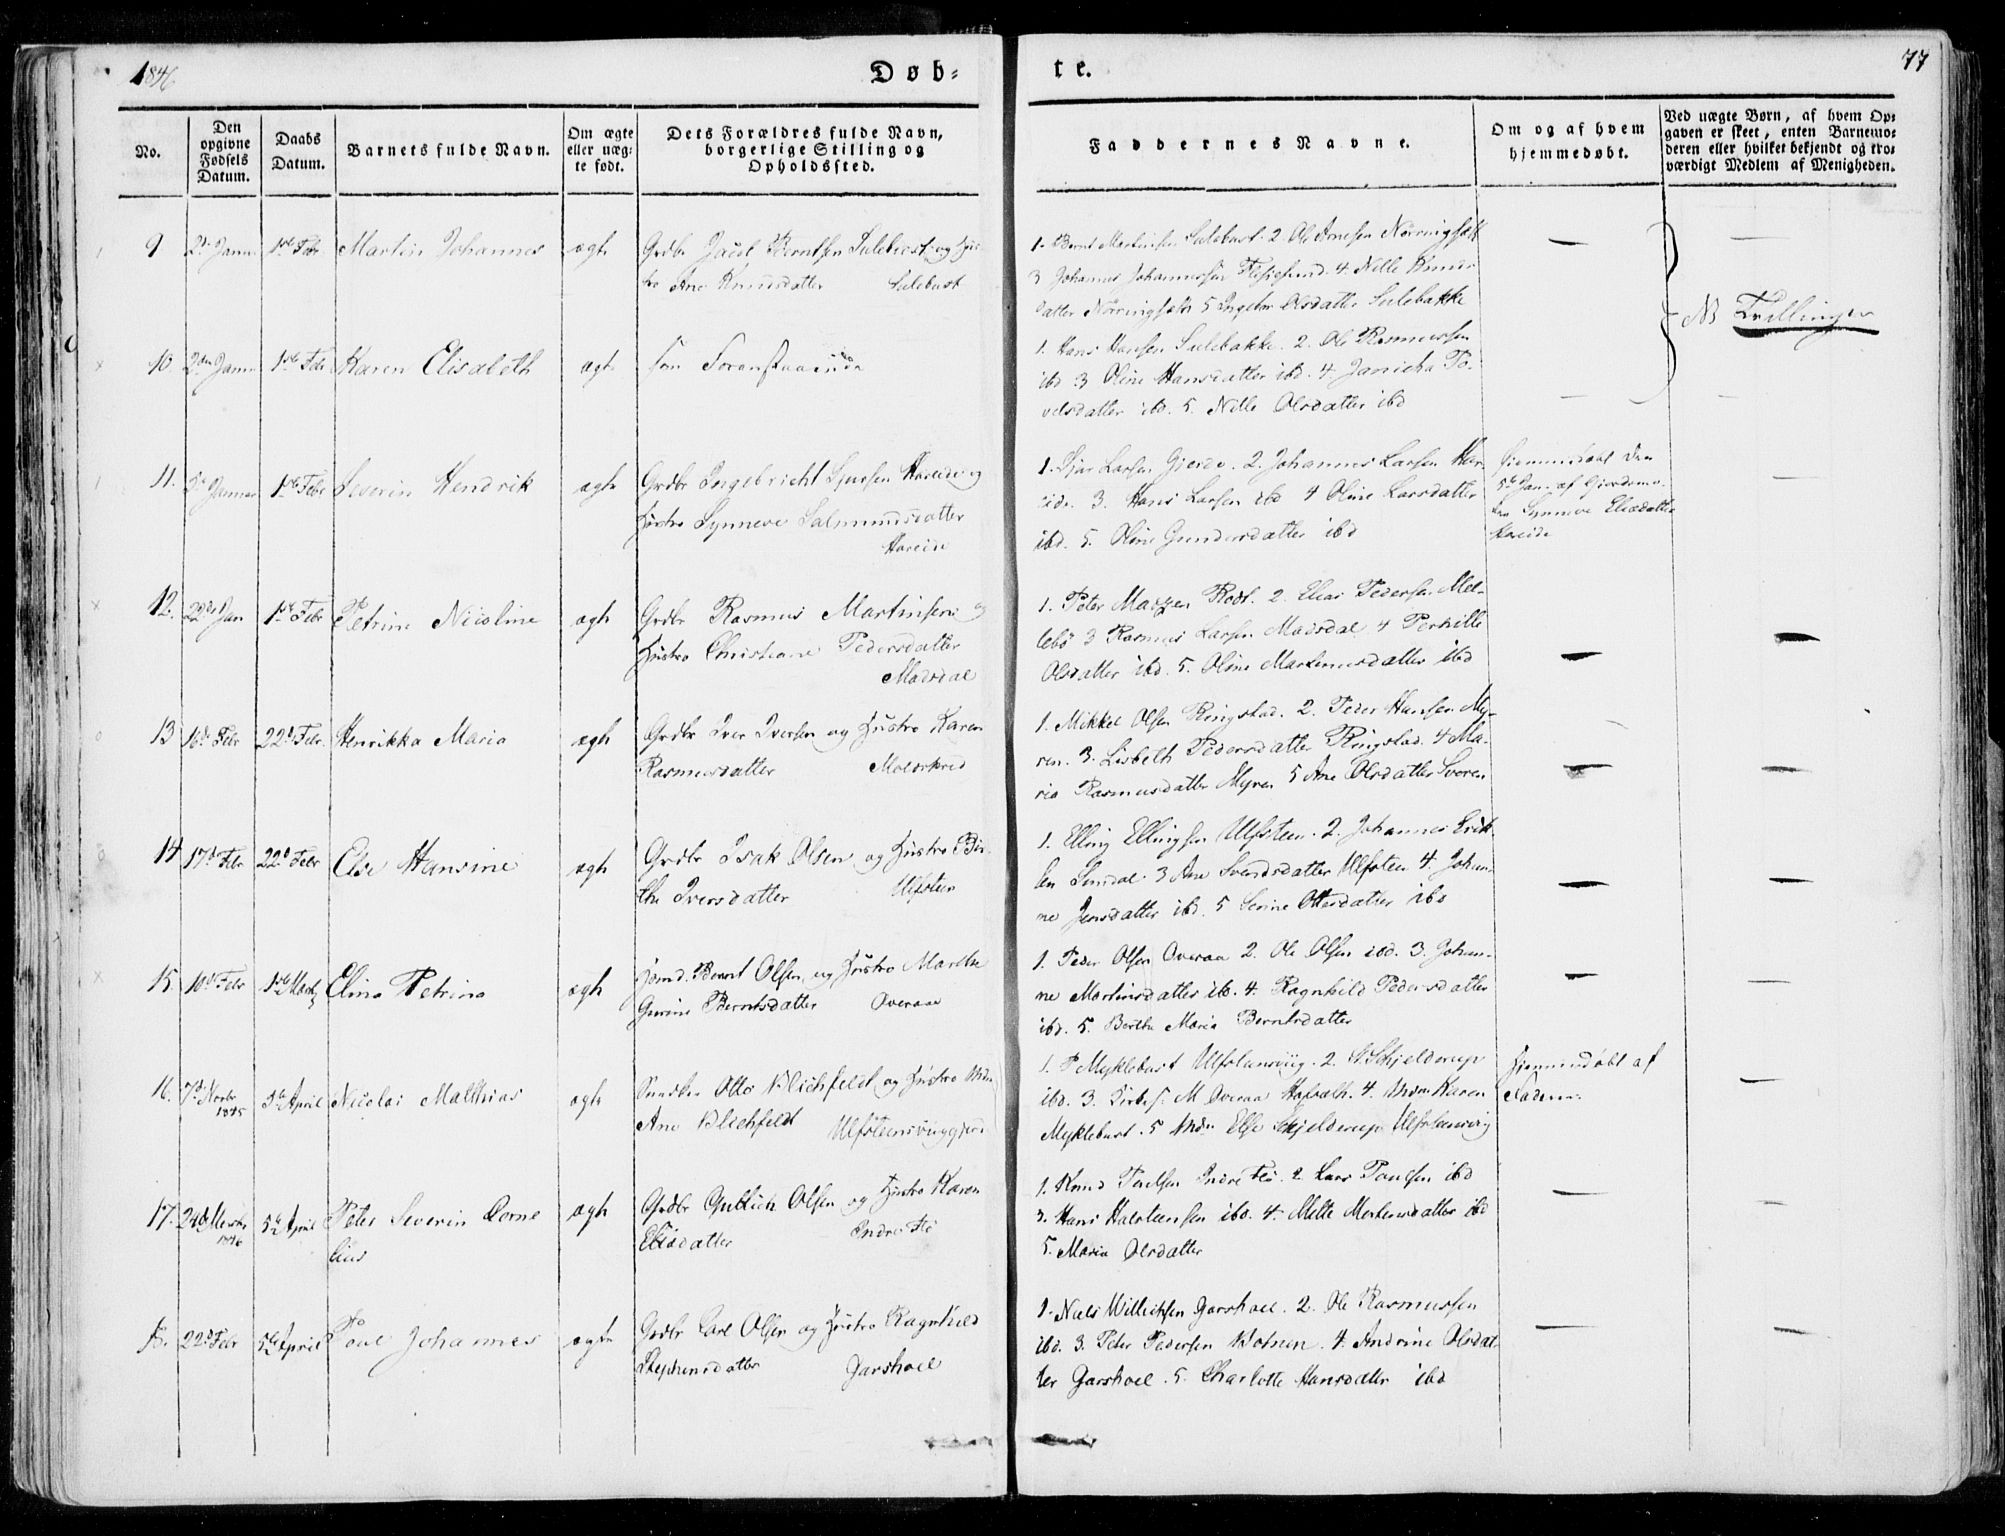 1846
Døb=
te.
77
No.
Den
opgivne
Fødsels
Datum.
Daabs
Datum.
Barnets fulde Navn.
Om ægte
eller uæg=
te født.
Dets Forældres fulde Navn,
borgerlige Stilling og
Opholdssted.
Faddernes Navne.
Om og af hvem
hjemmedøbt.
Ved uægte Børn, af hvem Op=
gaven er skeet, enten Barnemo=
deren eller hvilket bekjendt og tro=
værdigt Medlem af Menigheden.
9
1ste Febr
Martin Johannes
ægte
Grdbr Berntsen Sulebust og Hus-
tro Ane Knudsdatter Sulebust
1. Bernt Martinsen Sulebust. 2. Ole Arnesen
3 Johannes Johannessen 4. Nille Knuds
datter 5 Olsdatter Sulebakke
NB Tvillinger
10
2den Janu
1ste Febr
Karen Elisabeth
ægte
som Foranstaaende
1. Hans Hansen Sulebakke. 2. Ole Rasmussen
ibd 3 Oline Hansdatter ibd. 4. Janicka To-
datter ibd. 5. Nille Olsdatter ibd
11.
1ste Febr
Severin Hendrik
ægte
Grdbr Ingebricht Sjursen Hareide og
Hustro Synneve Salmundsdatter
Hareide
1. Sjur Larsen Gjerde. 2. Johannes Larsen Har-
eide. 3. Hans Larsen ibd 4 Oline Larsdatter
ibd. 5. Oline Gundersdatter ibd
Hjemmedøbt den
5te Jan. af Gjordemo-
Synneve
Hareide
12.
22de Jan
1ste Febr
Petrine Nicoline
ægte
Grdbr Rasmus Martinsen og
Hustro Christiane Pedersdatter
Madsdal
1. Peter 2. Elias Pedersen Mel-
lebø 3 Rasmus Larsen Madsdal 4 Pernille
Olsdatter ibd. 5. Oline Martinusdatter ibd
13
16d Febr
22d Febr.
Henrikka Maria
ægte
Grdbr Iver Iversen og Hustro Karen
Rasmusdatter
1. Mikkel Olsen Ringstad. 2. Peder Hansen My-
ren. 3. Lisbeth Pedersdatter Ringstad. 4 Ma-
ria Rasmusdatter Myren 5 Ane Olsdatter
14
17d Febr
22d Febr
Else Hansine
ægte
Grdbr Isak Olsen og Hustro Bir-
the Iversdatter Ulfsteen
1. Elling Ellingsen Ulfsteen. 2. Johannes Erik-
sen 3 Ane Svendsdatter Ulfsteen 4. Johan-
ne Jensdatter ibd. 5 Serine Ottersdatter ibd
15.
10d Febr
1ste Martz
Elina Petrina
ægte
Bernt Olsen og Hustro Marthe
Gurine Berntsdatter Overaae
1. Peder Olsen Overaa 2. Ole Olsen ibd. 3. Johan-
ne Martinsdatter ibd. 4. Ragnhild Pedersdatter
ibd. 5. Berthe Maria Berntsdatter
16.
1845
5te April
Nicolai Mathias
ægte
Otto Blichfeldt og Hustro Mdm
Ane Blichfeldt
1. P Myklebust 2. Schjelderup
ibd. 3. M Overaa 4. Mdm Karen
Myklebust. 5 Mdm Else Schjelderup
Hjemmedøbt af
Faderen
17.
24d
1846
5te April
Peter Severin Corne
lius
ægte
Grdbr Olsen og Hustro Karen
Eliasdatter Indre Flø
1. Knud Indre Flø. 2 Lars ibd
3. Hans ibd. 4. Mette Mortensdatter ibd
5. Maria Olsdatter
22d Febr
5te April
Poul Johannes
ægte
Grdbr Carl Olsen og Hustro Ragnhild
Stephensdatter Garshoel
1. Niels Willichsen Garshoel. 2. Ole Rasmussen
ibd. 3. Peter Pedersen 4. Andrine Olsdat-
ter Garshoel. 5. Charlotte Hansdatter ibd